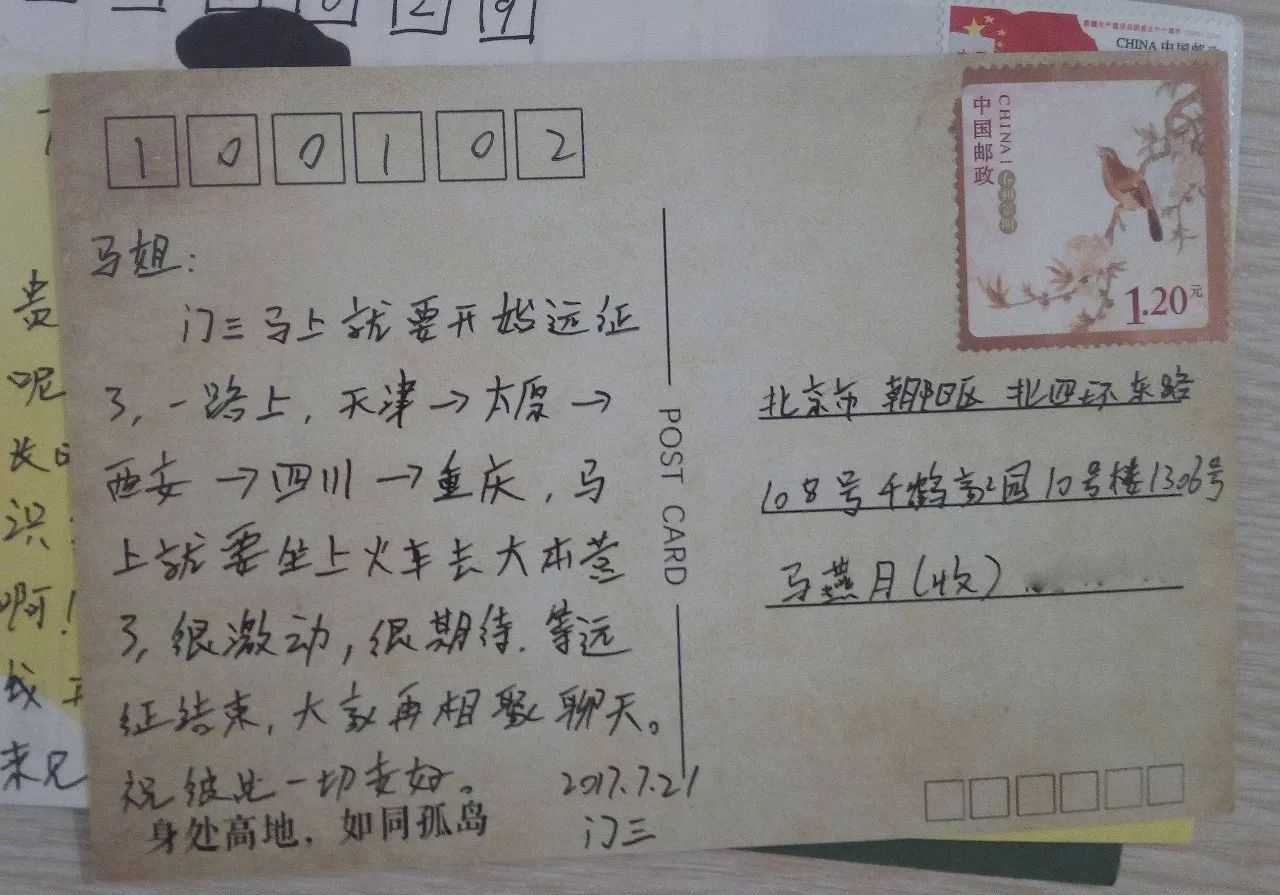 029
CHINA 中国邮政
100102
中国邮政
CHINA
1.20元
马姐:
门三马上就要开始远征
了,一路上,天津→太原→
西安→四川→重庆,马
上就要坐上火车去大本营
了,很激动,很期待.等远
征结束,大家再相聚聊天。
祝彼此一切安好。
2017.7.21
门三
身处高地,如同孤岛
POST CARD
北京市 朝阳区 北四环东路
108号千鹤家园10号楼1306号
马燕月(收)
贵
呢
长
识
啊!
找
来兄